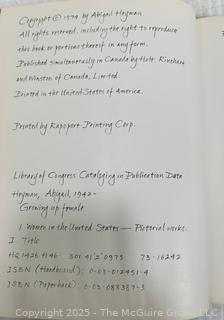 Copyright © 1974 by Abigail Heyman
All rights reserved, including the right to reproduce
this book or portions thereof in any form.
Published simultaneously in Canada by Holt, Rinehart
and Winston of Canada, Limited.
Printed in the United States of America.
Printed by Rapoport Printing Corp.
Library of Congress Cataloging in Publication Data
Heyman, Abigail, 1942-
Growing up female.
1. Women in the United States — Pictorial works.
I. Title
HQ1426.H46 301.41'2'0973 73-16242
ISBN (Hardbound): 0-03-012451-4
ISBN (Paperback): 0-03-088387-3
Copyright 2025 - The McGuire Group